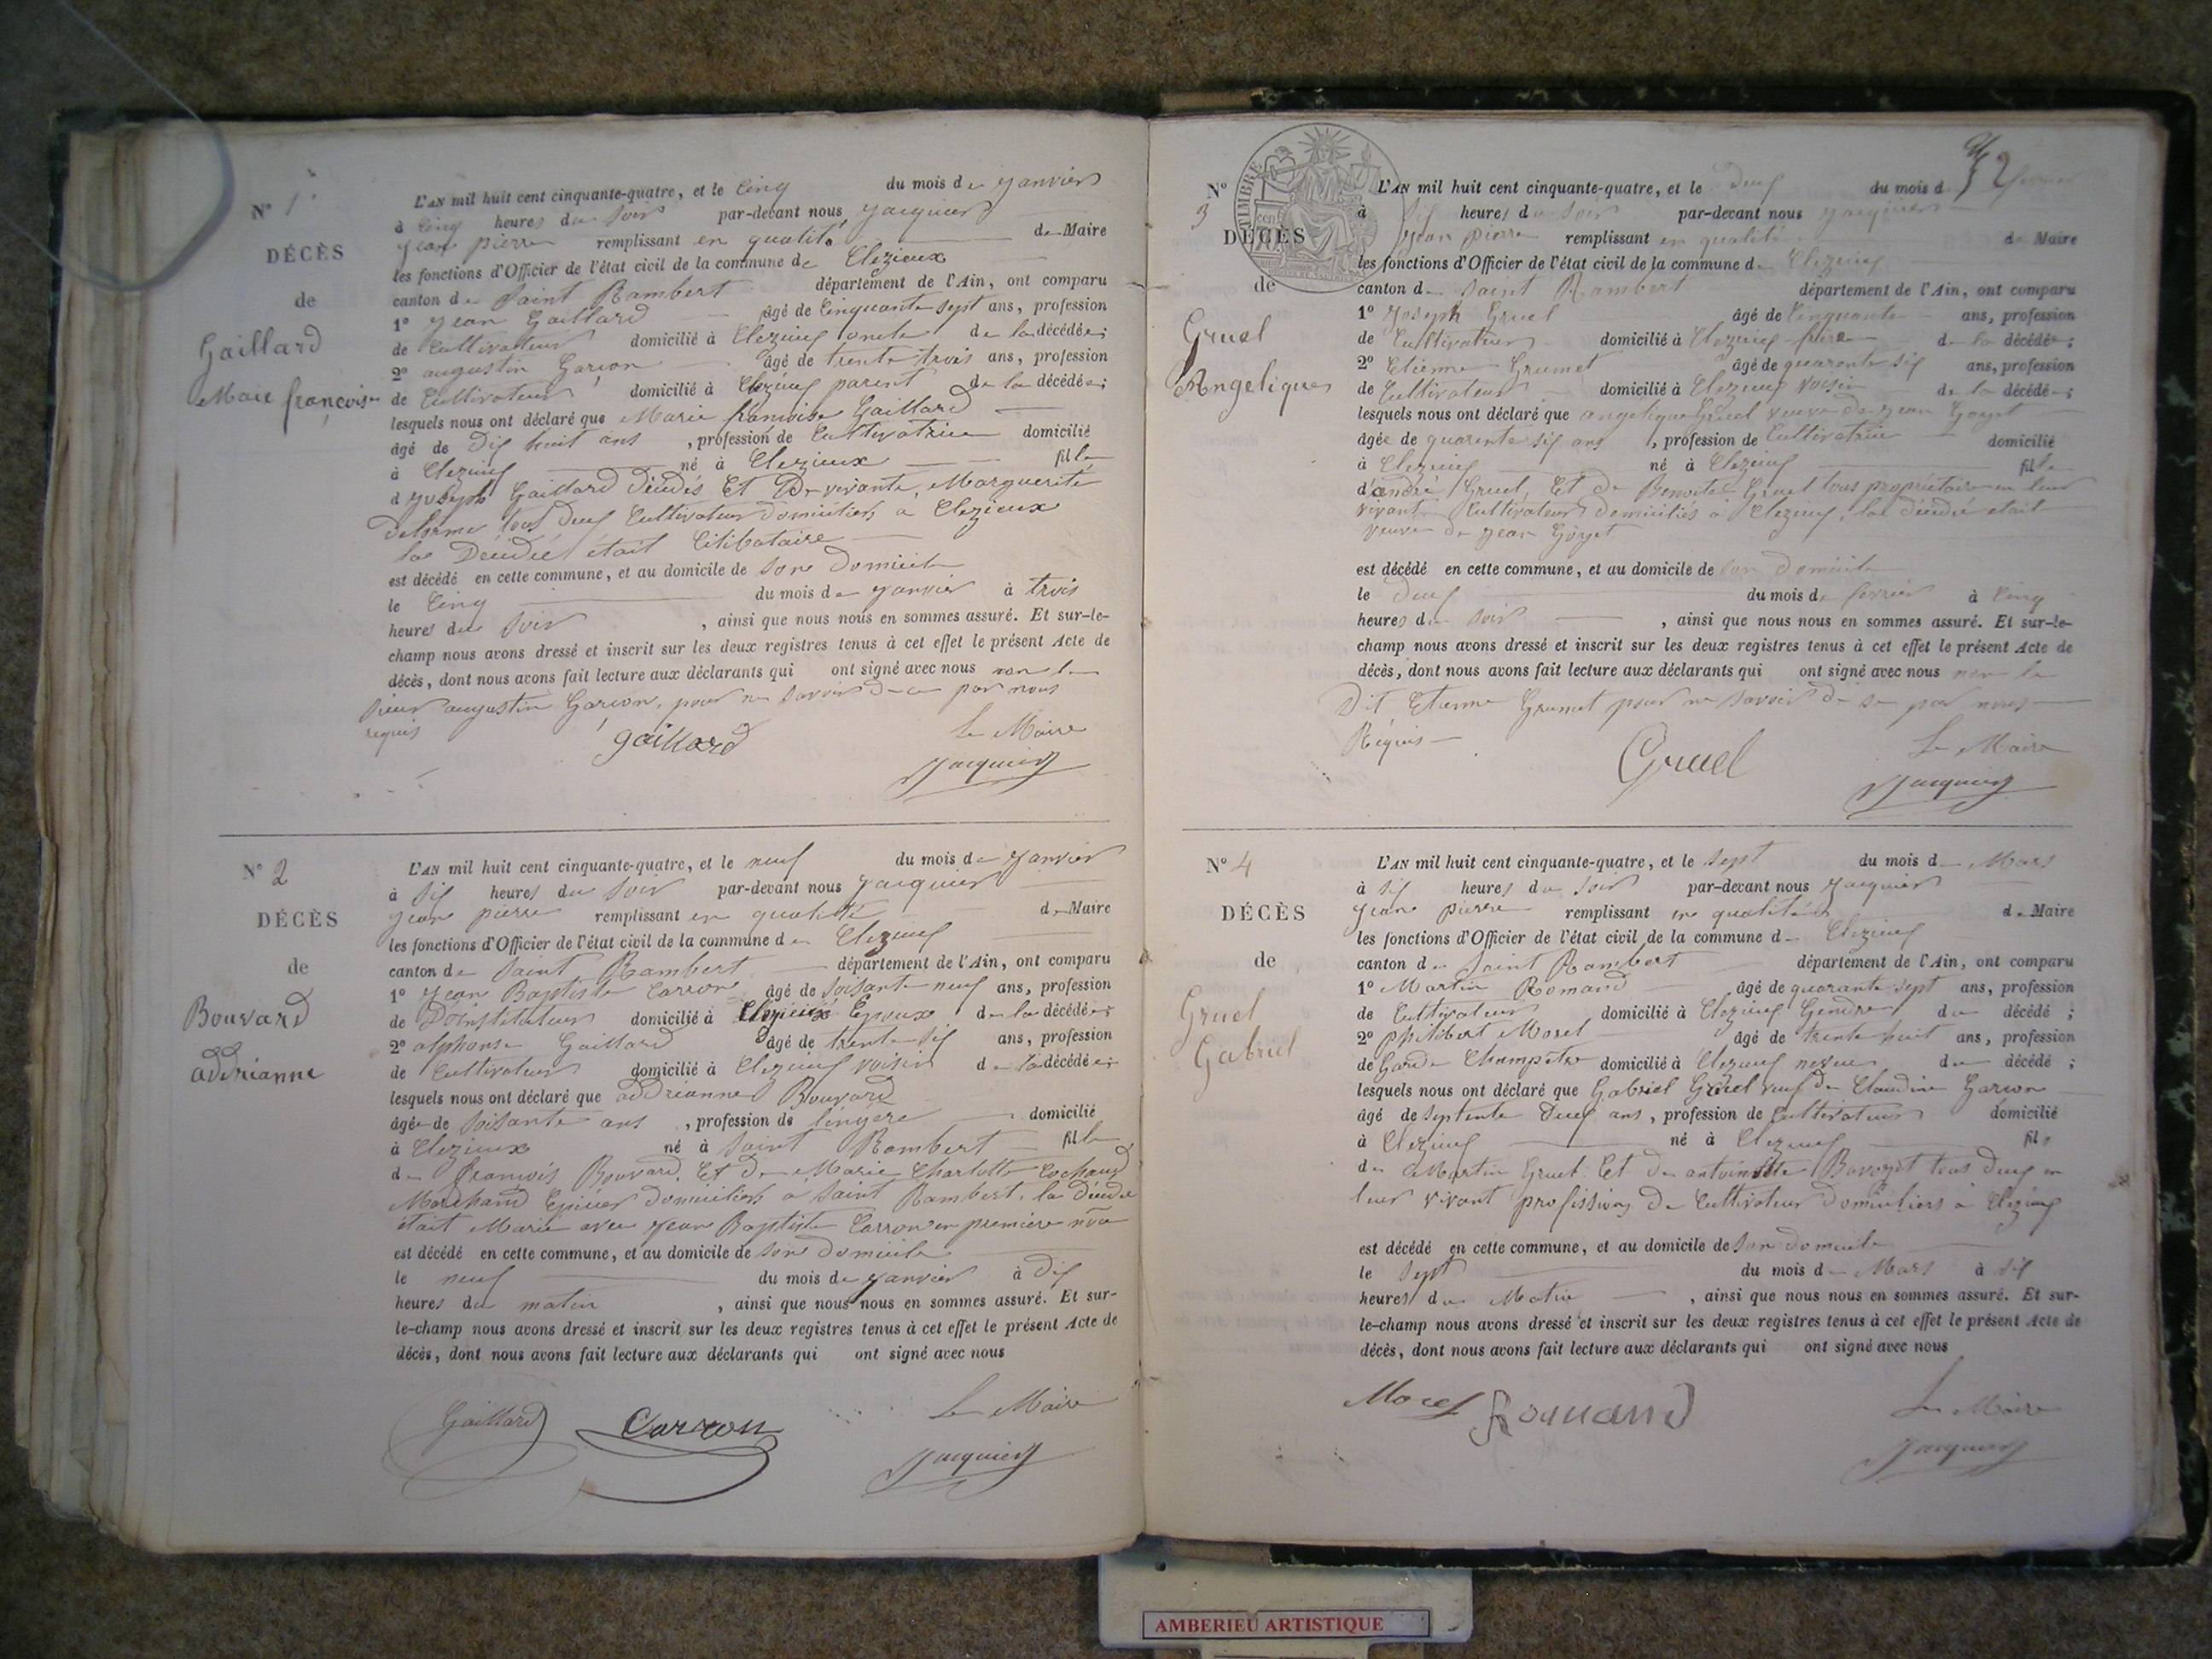 N° 1
DÉCÈS
de
Gaillard
Marie françoise
L'AN mil huit cent cinquante-quatre, et le Cinq du mois de Janvier
à Cinq heures du Soir par-devant nous Jacquier
Jean pierre remplissant en qualité de Maire
les fonctions d'Officier de l'état civil de la commune de Clezieux
canton de Saint Rambert département de l'Ain, ont comparu
1° Jean Gaillard âgé de Cinquante sept ans, profession
de Cultivateur domicilié à Clezieux oncle de la décédée;
2° augustin Garçon âgé de trente trois ans, profession
de Cultivateur domicilié à Clezieux parent de la décédée;
lesquels nous ont déclaré que Marie francoise Gaillard
âgé de Dix huit ans, profession de Cultivatrice domicilié
à Clezieux né à Clezieux fille
d Joseph Gaillard Décédés Et De vivante, Marguerite
Delorme tous deux Cultivateur domiciliers à Clezieux
la Décédée était Célibataire
est décédé en cette commune, et au domicile de Son Domicile
le Cinq du mois de Janvier à trois
heures du Soir, ainsi que nous nous en sommes assuré. Et sur-le-
champ nous avons dressé et inscrit sur les deux registres tenus à cet effet le présent Acte de
décès, dont nous avons fait lecture aux déclarants qui ont signé avec nous non le
Sieur augustin Garçon, pour ne savoir de ce par nous
requis
gaillard
Le Maire
Jacquier
N° 2
DÉCÈS
de
Bouvard
addrianne
L'AN mil huit cent cinquante-quatre, et le neuf du mois de Janvier
à Six heures du Soir par-devant nous Jacquier
Jean pierre remplissant en qualité de Maire
les fonctions d'Officier de l'état civil de la commune de Clezieux
canton de Saint Rambert département de l'Ain, ont comparu
1° Jean Baptiste Carron âgé de Soisante neuf ans, profession
de D'instituteur domicilié à Clezieux Epoux de la décédée;
2° alphonse Gaillard âgé de trente Six ans, profession
de Cultivateur domicilié à Clezieux voisin de la décédée;
lesquels nous ont déclaré que addrianne Bouvard
âgée de Soisante ans, profession de lingère domicilié
à Clezieux né à Saint Rambert fille
de François Bouvard, Et De Marie Charlotte
Marchand Epicier domiciliers à Saint Rambert, la décédé
était Marie avec Jean Baptiste Carron en première
est décédé en cette commune, et au domicile de Son Domicile
le neuf du mois de Janvier à Dix
heures du matin, ainsi que nous nous en sommes assuré. Et sur-
le-champ nous avons dressé et inscrit sur les deux registres tenus à cet effet le présent Acte de
décès, dont nous avons fait lecture aux déclarants qui ont signé avec nous
Gaillard Carron
Le Maire
Jacquier
N° 3
TIMBRE
DÉCÈS
de
Gruel
Angelique
L'AN mil huit cent cinquante-quatre, et le Deux du mois d
à Six heures du Soir par-devant nous Jacquier
Jean pierre remplissant en qualité de Maire
les fonctions d'Officier de l'état civil de la commune de Clezieux
canton de Saint Rambert département de l'Ain, ont comparu
1° Joseph Gruel âgé de Cinquante ans, profession
de Cultivateur domicilié à Clezieux frère de la décédée;
2° Etienne Grumet âgé de quarante Six ans, profession
de Cultivateur domicilié à Clezieux voisin de la décédée;
lesquels nous ont déclaré que angelique Gruel veuve de Jean Gojet
âgée de quarente Six ans, profession de Cultivatrice domicilié
à Clezieux né à Clezieux fille
d'andré Gruel, Et De Benoite Gruel tous propriétaire en leur
vivant Cultivateur domiciliés à Clezieux, la décédée était
veuve de Jean Gojet
est décédé en cette commune, et au domicile de Son Domicile
le Deux du mois de fevrier à Cinq
heures du Soir, ainsi que nous nous en sommes assuré. Et sur-le-
champ nous avons dressé et inscrit sur les deux registres tenus à cet effet le présent Acte de
décès, dont nous avons fait lecture aux déclarants qui ont signé avec nous non le
Dit Etienne Grumet pour ne savoir de ce par nous
Réquis
Gruel
Le Maire
Jacquier
N° 4
DÉCÈS
de
Gruel
Gabriel
L'AN mil huit cent cinquante-quatre, et le Sept du mois de Mars
à Six heures du Soir par-devant nous Jacquier
Jean pierre remplissant en qualité de Maire
les fonctions d'Officier de l'état civil de la commune de Clezieux
canton de Saint Rambert département de l'Ain, ont comparu
1° Martin Romand âgé de quarante Sept ans, profession
de Cultivateur domicilié à Clezieux Gendre du décédé;
2° philibert Morel âgé de trente huit ans, profession
de Garde Champêtre domicilié à Clezieux neveu du décédé;
lesquels nous ont déclaré que Gabriel Gruel veuf de Claudine Garçon
âgé de Septente Deux ans, profession de Cultivateur domicilié
à Clezieux né à Clezieux fils
de Martin Gruel Et De antoinette tous deux en
leur vivant professions de Cultivateur domiciliers à Clezieux
est décédé en cette commune, et au domicile de Son Domicile
le Sept du mois de Mars à Six
heures du Matin, ainsi que nous nous en sommes assuré. Et sur-
le-champ nous avons dressé et inscrit sur les deux registres tenus à cet effet le présent Acte de
décès, dont nous avons fait lecture aux déclarants qui ont signé avec nous
Morel Romand
Le Maire
Jacquier
AMBERIEU ARTISTIQUE